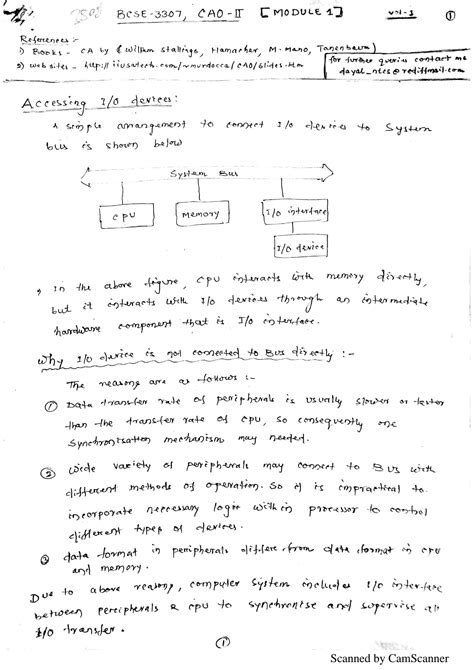 BCSE-3307, CAO-II [MODULE 1]
①
References :-
1) Books - CA by (William Stallings, Hamacher, M. Mano, Tanenbaum)
2) web sites - http://iiusatech.com/~murdocca/CAO/Slides.htm
for further queries contact me
dayal_ntcs@rediffmail.com
Accessing I/O devices:
A simple arrangement to connect I/O devices to System
bus is shown below
System Bus
CPU
Memory
I/O interface
I/O device
In the above figure, CPU interacts with memory directly,
but it interacts with I/O devices through an intermediate
hardware component that is I/O interface.
Why I/O device is not connected to Bus directly :-
The reasons are as follows :-
① Data transfer rate of peripherals is usually slower or faster
than the transfer rate of CPU, so consequently one
Synchronisation mechanism may needed.
② Wide variety of peripherals may connect to BUS with
different methods of operation. So it is impractical to
incorporate neccessary logic within processor to control
different types of devices.
③ data format in peripherals differ from data format in CPU
and memory.
Due to above reason, computer system includes I/O interface
between peripherals & CPU to synchronise and supervise all
I/O transfer.
①
Scanned by CamScanner